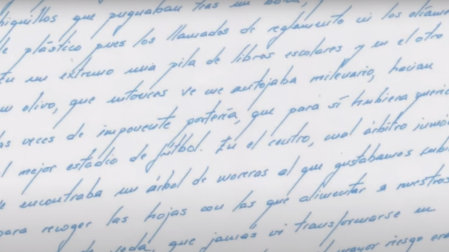 chiquillos que pugnaban tras un balón,
de plástico pues los llamados de reglamento ni los
En un extremo una pila de libros escolares y en el otro
un olivo, que entonces se me antojaba milenario, hacían
las veces de imponente portería, que para sí hubiera querido
el mejor estadio de fútbol. En el centro, cual árbitro
se encontraba un árbol de moreras al que gustábamos
para recoger las hojas con las que alimentar a nuestros
seda, que jamás vi transformarse en
mayor riesgo era